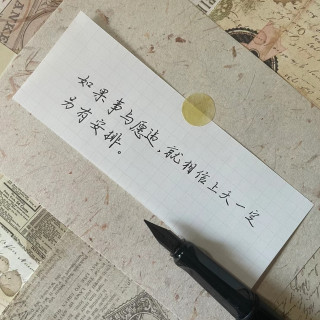 如果事与愿违,就相信上天一定
另有安排。